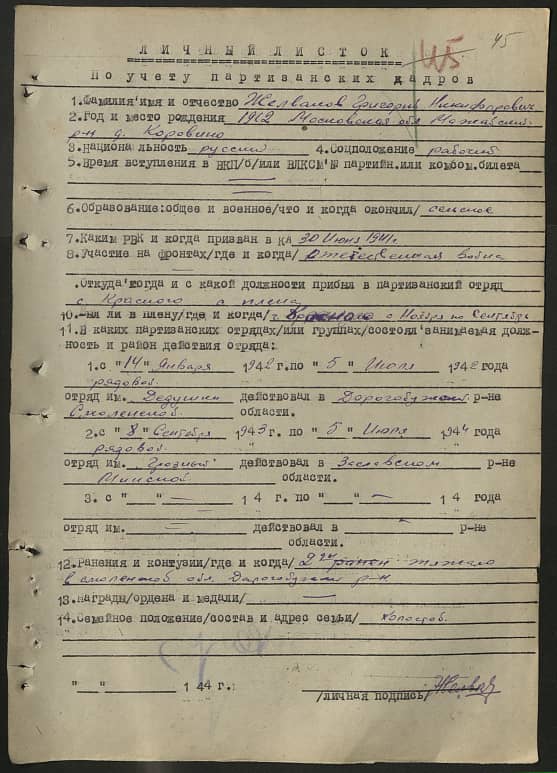 45
Л И Ч Н Ы Й Л И С Т О К
По учету партизанских кадров
1.Фамилия'имя и отчество Желванов Григорий Никифорович
2.Год и место рождения 1912 Московской обл Можайский
р-н д. Коровино
3.Национальность русский 4.Соцположение рабочий
5.Время вступления в ВКП/б/или ВЛКСМ'№ партийн.или комсом.билета
6.Образование:общее и военное/что и когда окончил/ сельское
7.Каким РВК и когда призван в КА 30 Июня 1941г
8.Участие на фронтах/где и когда/ отечественная война
.Откуда'когда и с какой должности прибыл в партизанский отряд
с. Красного с плена
10.Был ли в плену/где и когда/ с Ноября по Сентябрь
11.В каких партизанских отрядах/или группах/состоял'занимаемая долж-
ность и район действия отряда:
1.с "14" Января 1942 г.по " 5 " Июля 1942 года
рядовой
отряд им. Дедушки действовал в Дорогобужской р-не
Смоленской области.
2.с "8" Сентября 1943 г. по " 5 " Июля 1944 года
рядовой
отряд им. Грозный действовал в Заславском р-не
Минской области.
3. с "__" — 1 4 г. по "__" — 1 4 года
отряд им. — действовал в — р-не
области.
12.Ранения и контузии/где и когда/ ранен тяжело
в смоленской обл. Дорогобужский р-н
13.Награды/ордена и медали/ —
14.Семейное положение/состав и адрес семьи/ холостой
"__" 1 44 г.
/личная подпись/